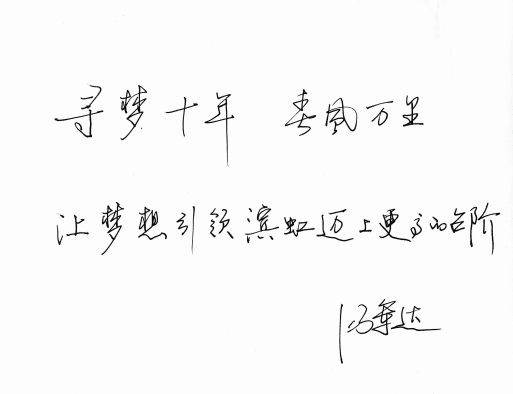 寻梦十年 春风万里
让梦想引领滨虹迈上更高的台阶